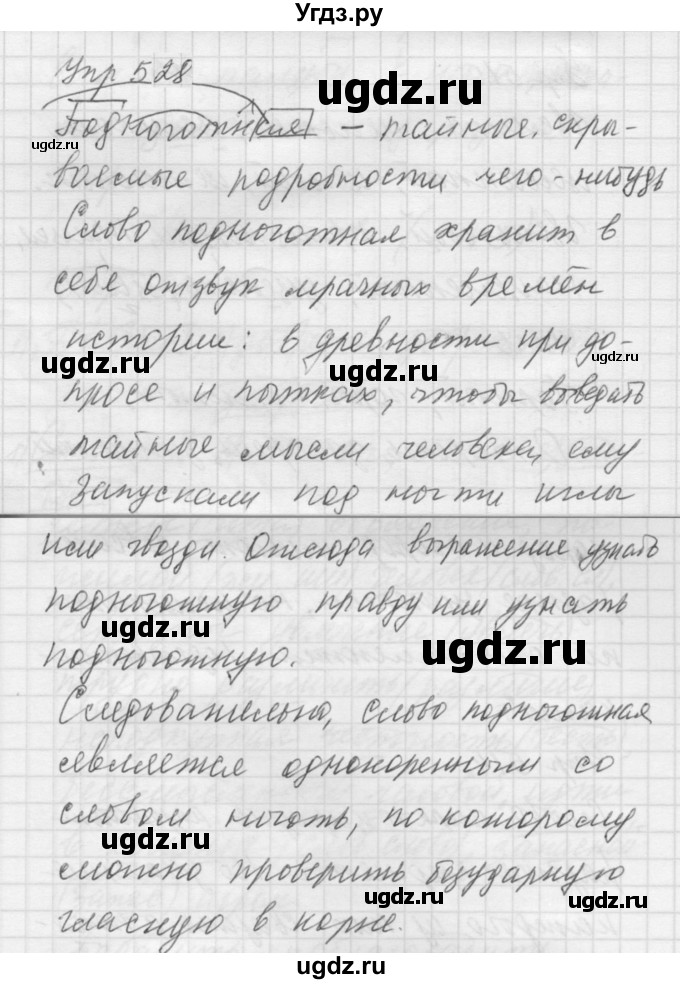 Угдз.ру
Упр 528
Подноготная – тайные, скры-
ваемые подробности чего-нибудь
Слово подноготная хранит в
себе отзвук мрачных времён
истории: в древности при до-
просе и пытках, чтобы выведать
тайные мысли человека, ему
запускали под ногти иглы
или гвозди. Отсюда выражение узнать
подноготную правду или узнать
подноготную.
Следовательно, слово подноготная
является однокоренным со
словом ноготь, по которому
можно проверить безударную
гласную в корне.
ugdz.ru
ugdz.ru
ugdz.ru
ugdz.ru
ugdz.ru
ugdz.ru
ugdz.ru
ugdz.ru
ugdz.ru
ugdz.ru
ugdz.ru
ugdz.ru